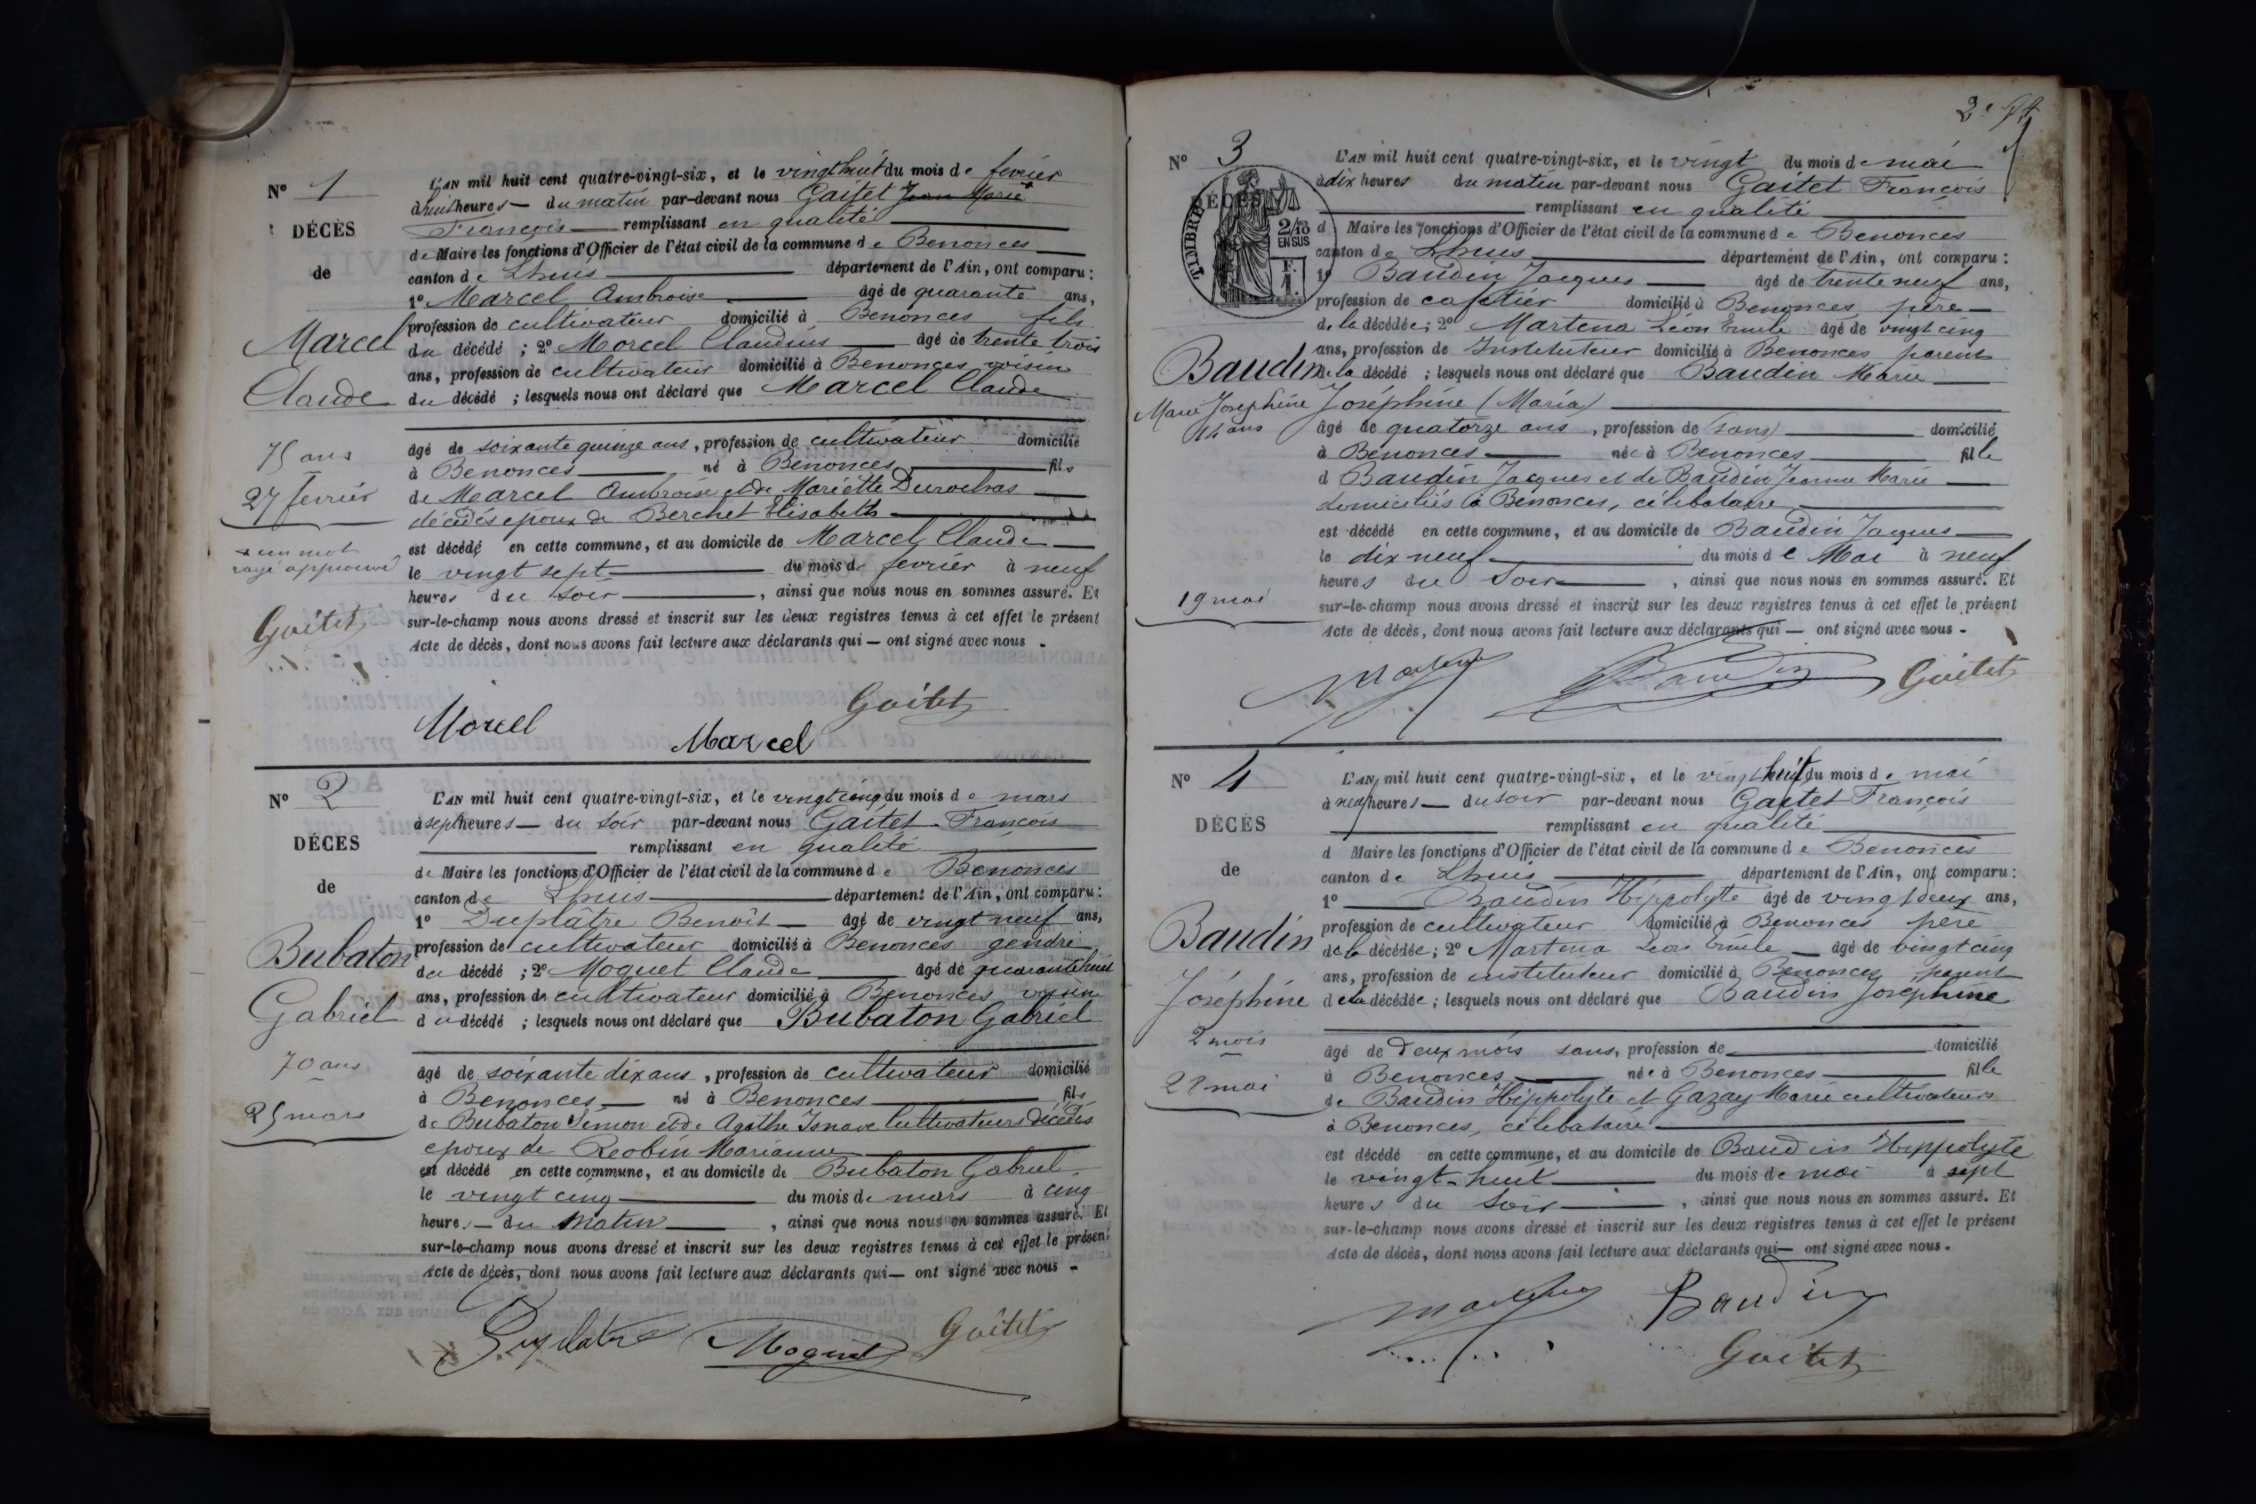 Nº 1
DÉCÈS
de
Marcel
Claude
75 ans
27 fevrier
un mot
rayé approuvé
Gaitet
L'AN mil huit cent quatre-vingt-six, et le vingt huit du mois de fevrier
à huit heures du matin par-devant nous Gaitet Jean Marie
François remplissant en qualité
de Maire les fonctions d'Officier de l'état civil de la commune de Benonces
canton de Lhuis département de l'Ain, ont comparu :
1º Marcel Ambroise âgé de quarante ans,
profession de cultivateur domicilié à Benonces fils
du décédé ; 2º Marcel Claudius âgé de trente trois
ans, profession de cultivateur domicilié à Benonces voisin
du décédé ; lesquels nous ont déclaré que Marcel Claude
âgé de soixante quinze ans, profession de cultivateur domicilié
à Benonces né à Benonces fils
de Marcel Ambroise et de Mariette
décédés epoux de Berchet Elisabeth
est décédé en cette commune, et au domicile de Marcel Claude
le vingt sept du mois de fevrier à neuf
heures du soir, ainsi que nous nous en sommes assuré. Et
sur-le-champ nous avons dressé et inscrit sur les deux registres tenus à cet effet le présent
Acte de décès, dont nous avons fait lecture aux déclarants qui — ont signé avec nous -
Marcel
Marcel
Gaitet
Nº 2
DÉCES
de
Bubaton
Gabriel
70 ans
25 mars
L'AN mil huit cent quatre-vingt-six, et le vingt cinq du mois de mars
à sept heures — du soir par-devant nous Gaitet François
remplissant en qualité
de Maire les fonctions d'Officier de l'état civil de la commune de Benonces
canton de Lhuis département de l'Ain, ont comparu :
1º Duplâtre Benoît âgé de vingt neuf ans,
profession de cultivateur domicilié à Benonces gendre
du décédé ; 2º Moquet Claude âgé de quarante huit
ans, profession de cultivateur domicilié à Benonces voisin
du décédé ; lesquels nous ont déclaré que Bubaton Gabriel
âgé de soixante dix ans, profession de cultivateur domicilié
à Benonces né à Benonces fils
de Bubaton Simon et de Agathe Isnave cultivateurs décédés
epoux de Reobin Marianne
est décédé en cette commune, et au domicile de Bubaton Gabriel
le vingt cinq du mois de mars à cinq
heures — du matin, ainsi que nous nous en sommes assuré. Et
sur-le-champ nous avons dressé et inscrit sur les deux registres tenus à cet effet le présent
Acte de décès, dont nous avons fait lecture aux déclarants qui — ont signé avec nous -
Duplatre
Moquet
Gaitet
Nº 3
DÉCÈS
TIMBRE
2/10
EN SUS
F.
1.
Baudin
Marie Josephine
14 ans
19 mai
L'AN mil huit cent quatre-vingt-six, et le vingt du mois de mai
à dix heures du matin par-devant nous Gaitet François
remplissant en qualité
d Maire les fonctions d'Officier de l'état civil de la commune de Benonces
canton de Lhuis département de l'Ain, ont comparu :
1º Baudin Jacques âgé de trente neuf ans,
profession de cafetier domicilié à Benonces père
de la décédée ; 2º Martena Léon Emile âgé de vingt cinq
ans, profession de Instituteur domicilié à Benonces parent
de la décédé ; lesquels nous ont déclaré que Baudin Marie
Joséphine (Maria)
âgé de quatorze ans, profession de (sans) domicilié
à Benonces née à Benonces fille
d Baudin Jacques et de Baudin Jeanne Marie
domiciliés à Benonces, célibataire
est décédé en cette commune, et au domicile de Baudin Jacques
le dix neuf du mois de Mai à neuf
heures du soir, ainsi que nous nous en sommes assuré. Et
sur-le-champ nous avons dressé et inscrit sur les deux registres tenus à cet effet le présent
Acte de décès, dont nous avons fait lecture aux déclarants qui — ont signé avec nous -
Baudin
Gaitet
Nº 4
DÉCÈS
de
Baudin
Joséphine
2 mois
28 mai
L'AN mil huit cent quatre-vingt-six, et le vingt huit du mois de mai
à neuf heures — du soir par-devant nous Gaitet François
remplissant en qualité
d Maire les fonctions d'Officier de l'état civil de la commune de Benonces
canton de Lhuis département de l'Ain, ont comparu :
1º Baudin Hippolyte âgé de vingt deux ans,
profession de cultivateur domicilié à Benonces père
de la décédée ; 2º Martena Léon Emile âgé de vingt cinq
ans, profession de instituteur domicilié à Benonces parent
de la décédée ; lesquels nous ont déclaré que Baudin Joséphine
âgé de deux mois sans, profession de domicilié
à Benonces née à Benonces fille
de Baudin Hippolyte et Gazay Marie cultivateurs
à Benonces, célibataire
est décédé en cette commune, et au domicile de Baudin Hippolyte
le vingt-huit du mois de mai à sept
heures du soir, ainsi que nous nous en sommes assuré. Et
sur-le-champ nous avons dressé et inscrit sur les deux registres tenus à cet effet le présent
Acte de décès, dont nous avons fait lecture aux déclarants qui — ont signé avec nous.
Baudin
Gaitet